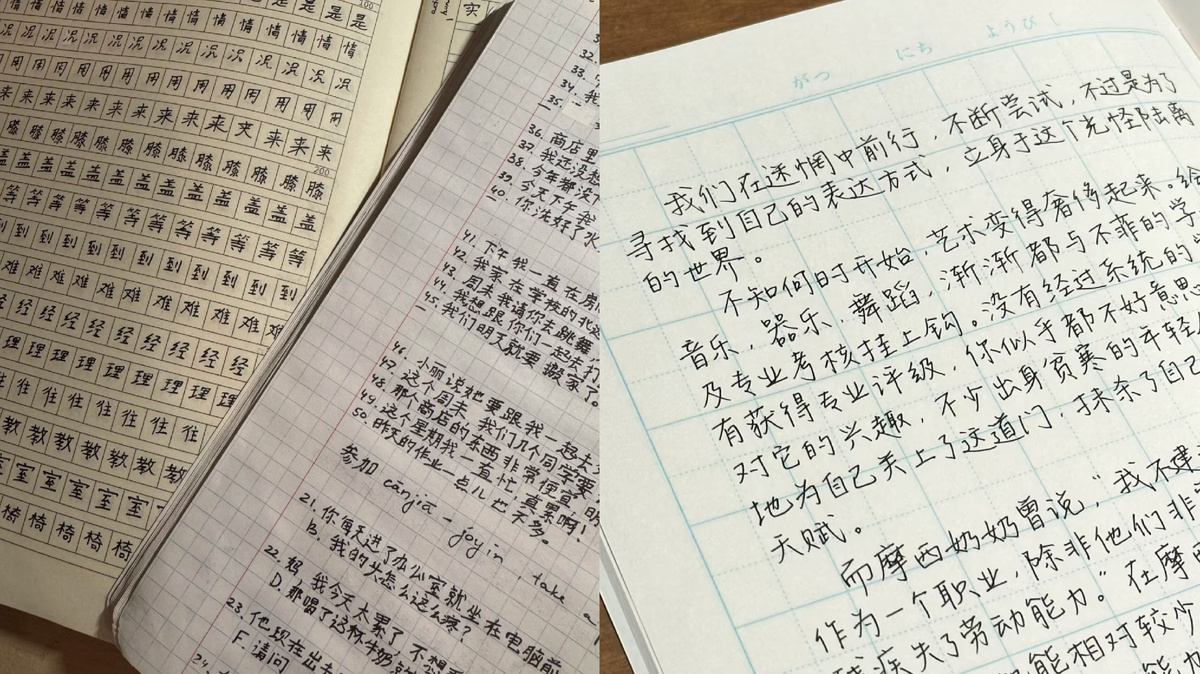 是 是 是
100
情 情 情 情 情 情 情 情 情 情 情 情 情
况 况 况 况 况 况 况 况 况 况 况 况
用 用 用 用 用 用 用 用 用 用 用 用
来 来 来 来 来 来 来 来 来 来 来 来
膝 膝 膝 膝 膝 膝 膝 膝 膝 膝 膝 膝
200
盖 盖 盖 盖 盖 盖 盖 盖 盖 盖 盖 盖
等 等 等 等 等 等 等 等 等 等 等
到 到 到 到 到 到 到 到 到 到 到
难 难 难 难 难 难 难 难 难 难
经 经 经 经 经 经 经 经 经
理 理 理 理 理 理 理 理 理
住 住 住 住 住 住 住 住
教 教 教 教 教 教 教
室 室 室 室 室 室
椅 椅 椅 椅 椅
实
32.
33.
34. 我
35.
36. 商店里
37. 我还没
38. 今年都没
39. 今天下午我
40. 你洗好了水
41. 下午我一直在
42. 我家在学校的
43. 周末我请你去跳舞
44. 我想跟你们一起去打
45. 我们明天就要搬家了。
46. 小丽说她要跟我一起去
47. 这个周末我们几个同学要
48. 那个商店的东西非常便宜,明
49. 这个星期我一直忙,真累啊!
50. 昨天的作业一点儿也不多。
参加 cānjiā - joyin, take
21. 你每天进了办公室就坐在电脑前
B. 我的头怎么这么疼?
22. 妈,我今天太累了,不想
D. 那喝了这杯牛奶就
23. 他现在出去
F. 请问
24.
がつ にち ようび
我们在迷惘中前行,不断尝试,不过是为了
寻找到自己的表达方式,立身于这个光怪陆离
的世界。
不知何时开始,艺术变得奢侈起来。给
音乐、器乐、舞蹈,渐渐都与不菲的学
及专业考核挂上钩。没有经过系统的
有获得专业评级,你似乎都不好意思
对它的兴趣,不少出身贫寒的年轻
地为自己关上了这道门,抹杀了自己
天赋。
而摩西奶奶曾说,“我不建
作为一个职业,除非他们非
残疾失了劳动能力。”在摩
能相对较少